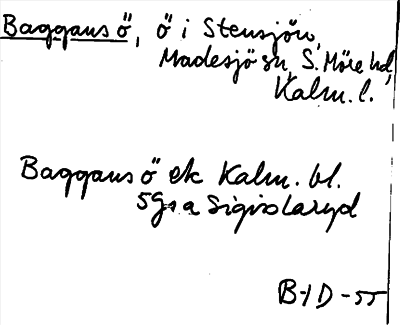 Baggans ö, ö i Stensjön,
Madesjö sn, S. Möre hd,
Kalm. l.
Baggans ö ek Kalm. bl.
5g a Sigislaryd
B-ID-55